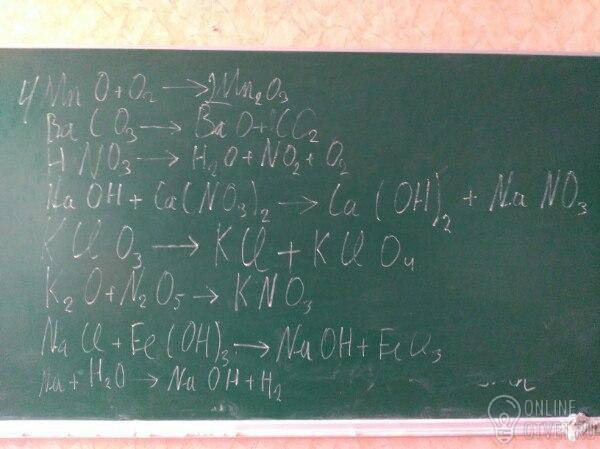 4 Mn O + O2 → 2Mn2O3
Ba CO3 → Ba O + CO2
H NO3 → H2O + NO2 + O2
Na OH + Ca(NO3)2 → Ca (OH)2 + Na NO3
K Cl O3 → K Cl + K Cl O4
K2O + N2O5 → K NO3
Na Cl + Fe (OH)3 → Na OH + Fe Cl3
Na + H2O → Na OH + H2
ONLINE
OTVET.RU